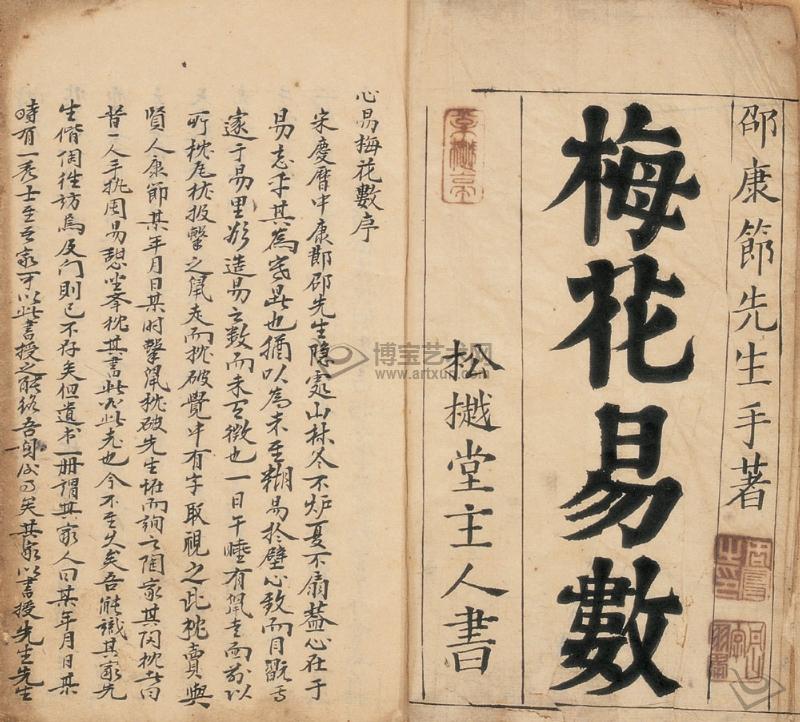 邵康節先生手著
梅花易數
松樾堂主人書
心易梅花數序
宋慶曆中康節邵先生隱處山林冬不炉夏不扇蓋心在于
易忘乎其為寒暑也猶以為未至糊易於壁心致而目翫焉
邃于易里欲造易之数而未有徵也一日午睡有鼠走而前以
所枕瓦枕投擊之鼠走而枕破覺中有字取視之此枕賣與
賢人康節某年月日某时擊鼠枕破先生怪而詢之陶家其陶枕者曰
昔一人手执周易憩坐奉枕其書此必此老也今不至久矣吾能識其家先
生偕陶往訪焉及门則已不存矣但遺书一册謂其家人曰某年月日某
時有一秀士至吾家可以此書授之能终吾身后事矣其家以書授先生先生
博宝艺术网
www.artxun.com